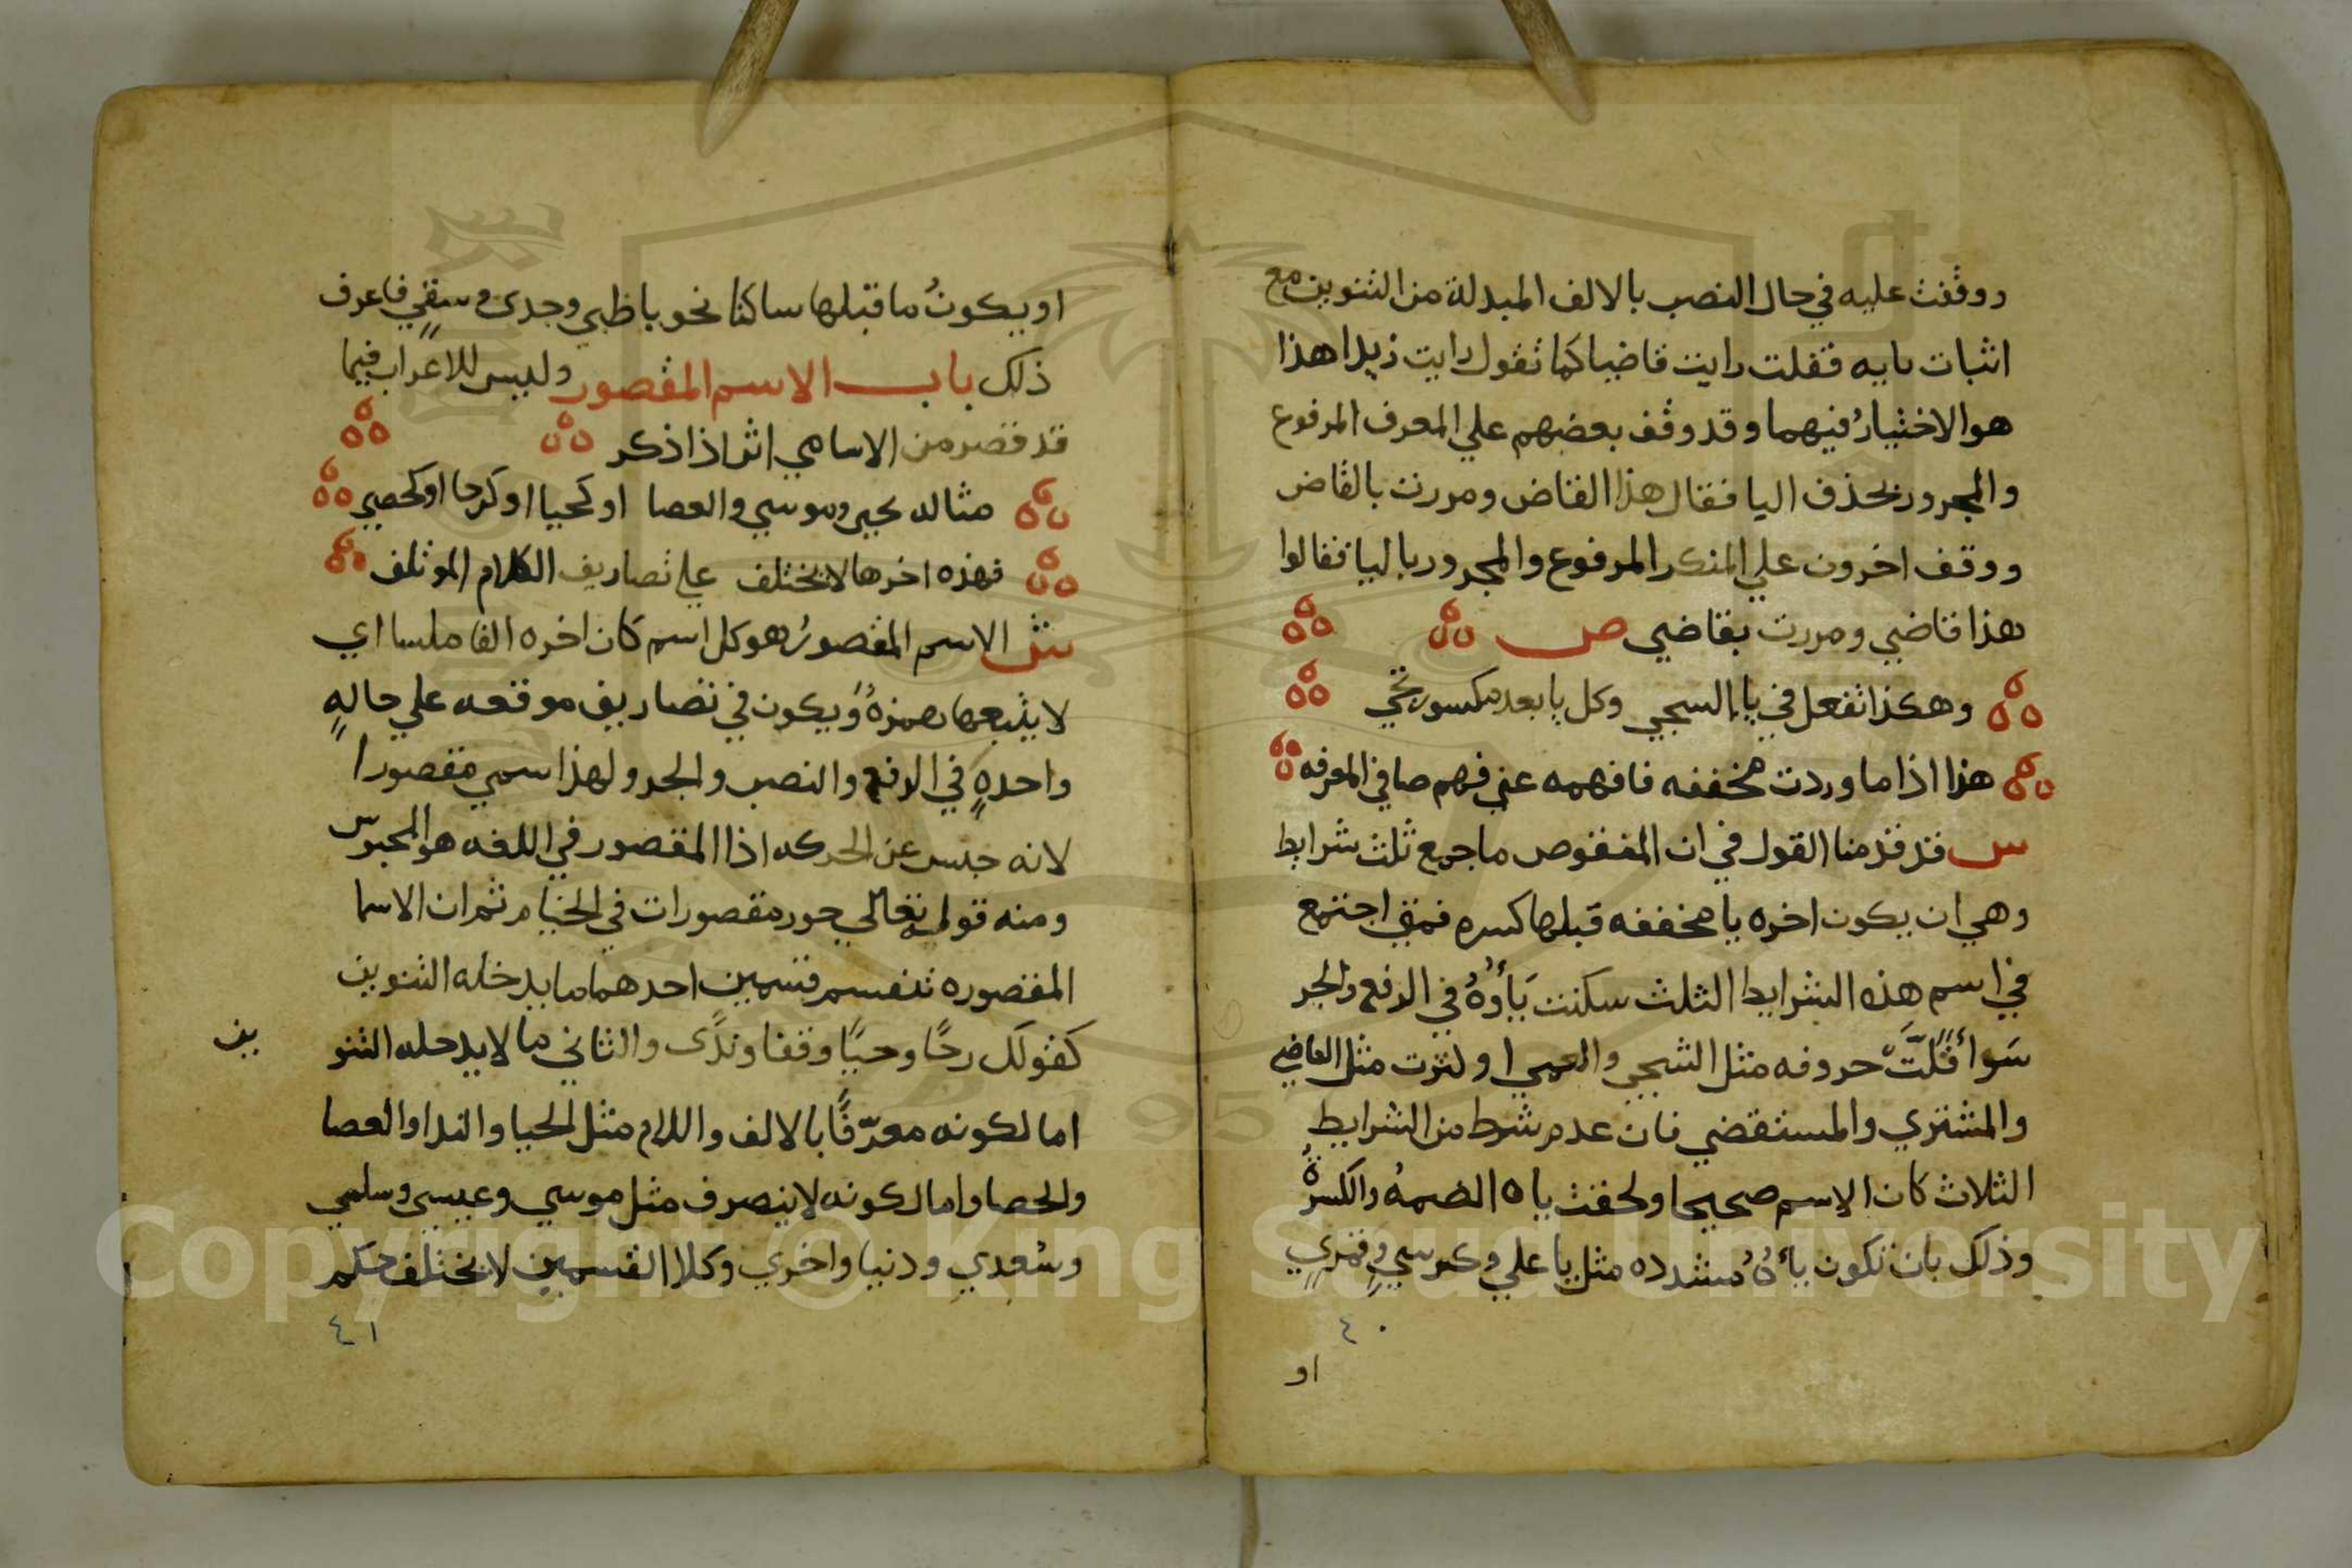 ووقفت عليه في حال النصب بالالف المبدلة من التنوين مع
اثبات يايه فقلت رايت قاضيا كما تقول رايت زيدا هذا
هو الاختيارُ فيهما وقد وقف بعضهم علي المعرف المرفوع
والمجرور بحذف اليا فقال هذا القاض ومررت بالقاض
ووقف اخرون علي المنكر المرفوع والمجرور باليا فقالوا
هذا قاضي ومررت بقاضي ص
وهكذا تفعل في يا السجي وكل يا بعد مكسور تجي
هذا اذا ما وردت مخففه فافهمه عني فهم صافي المعرفه
س قد قدمنا القول في ان المنقوص ما جمع ثلث شرايط
وهي ان يكون اخره يا مخففه قبلها كسره فمتي اجتمع
في اسم هذه الشرايط الثلث سكنت يَأوُهُ في الرفع والجر
سَوا قَلَّتْ حروفه مثل الشجي والعمي او كثرت مثل القاضي
والمشتري والمستقضي فان عدم شرط من الشرايط
الثلاث كان الاسم صحيحا ولحقت ياه الضمهُ والكسرةُ
وذلك بان تكون يأهُ مشدده مثل يا علي وكرسيٍ وقمريٍ
٤٠
او
او يكونُ ما قبلها ساكنا نحو يا ظبي وجدي وسقيٍ فاعرف
ذلك باب الاسم المقصور وليس للاعراب فيما
قد قصر من الاسامي اثر اذا ذكر
مثاله يحيى وموسي والعصا او كحيا او كرحا او كحصي
فهذه اخرها لا يختلف علي تصاريف الكلام الموتلف
ش الاسم المقصورُ هو كل اسم كان اخره الفا ملسا اي
لا يتبعها همزةُ ويكون في تصاريف موقعه علي حالهٍ
واحدهٍ في الرفع والنصب والجر ولهذا سمي مقصورا
لانه حبس عن الحركه اذا المقصور في اللغه هو المحبوس
ومنه قوله تعالي حور مقصورات في الخيام ثم ان الاسما
المقصوره تنقسم قسمين احدهما ما يدخله التنوين
كقولك رحًا وحيًا وقفا وندًى والثاني ما لا يدخله التنو
ين
اما لكونه معرّفًا بالالف واللام مثل الحيا والندا والعصا
والحصا واما لكونه لا ينصرف مثل موسي وعيسي وسلمي
وسُعدي ودنيا واخري وكلا القسمين لا يختلف حكم
٤١
Copyright © King Saud University
1957